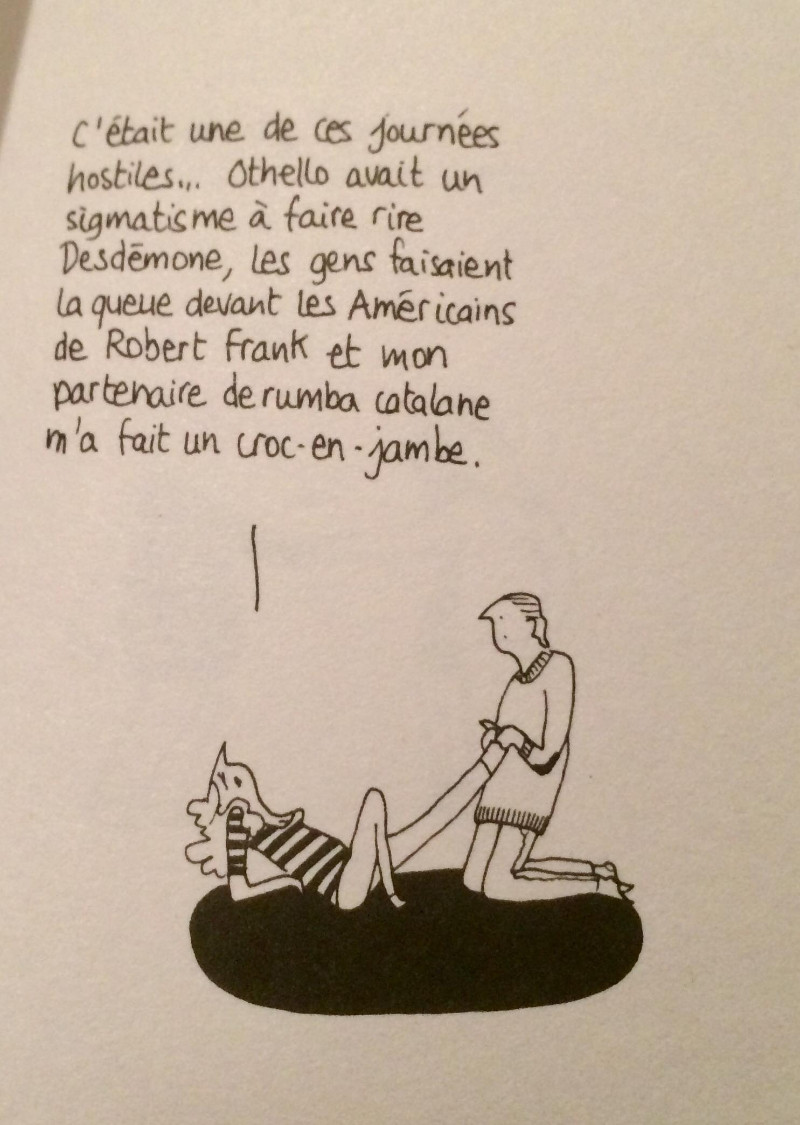 C'était une de ces journées
hostiles... Othello avait un
sigmatisme à faire rire
Desdémone, les gens faisaient
la queue devant les Américains
de Robert Frank et mon
partenaire de rumba catalane
m'a fait un croc-en-jambe.